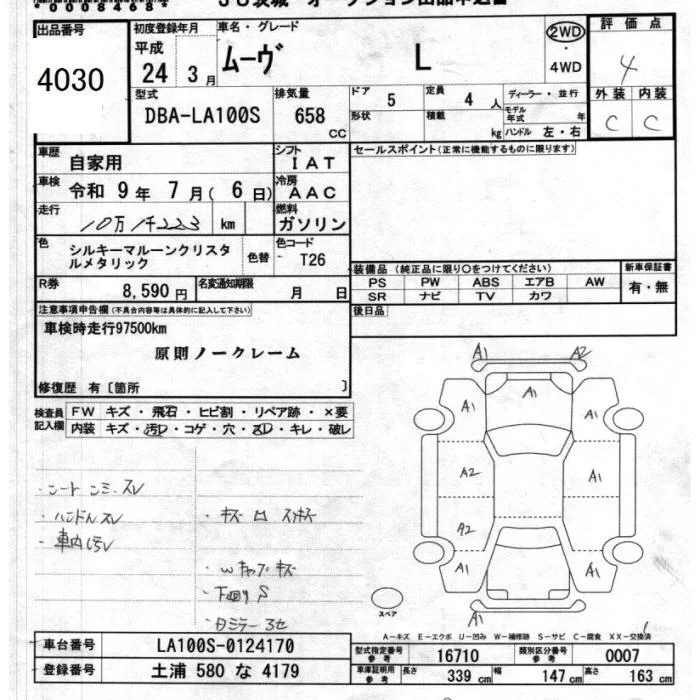 *00008468*
JU茨城 オークション出品申込書
出品番号
4030
初度登録年月
平成
24 3月
車名・グレード
ムーヴ L
2WD
・
4WD
評価点
4
型式
DBA-LA100S
排気量
658
CC
ドア
5
定員
4 人
形状
積載
kg
ディーラー・並行
モデル年式 年
ハンドル 左・右
外装 内装
C C
車歴
自家用
シフト
IAT
セールスポイント(正常に機能するものに限ります)
車検
令和 9年 7月( 6日)
冷房
AAC
走行
10万1千223 km
燃料
ガソリン
色
シルキーマルーンクリスタ
ルメタリック
色替
色コード
T26
装備品 (純正品に限り○をつけてください)
新車保証書
PS PW ABS エアB AW
SR ナビ TV カワ
有・無
R券
8,590円
名変通知期限
月 日
後日品
注意事項申告欄(不具合内容等は具体的に記入して下さい)
車検時走行97500km
原則ノークレーム
修復歴 有〔箇所 〕
検査員
記入欄
FW キズ・飛石・ヒビ割・リペア跡・×要
内装 キズ・汚レ・コゲ・穴・スレ・キレ・破レ
・シート シミ、スレ
・ハンドルスレ
・車内汚レ
・キズ
・Wキャプ キズ
・下廻り S
A1 A2
A1 A1 A1
A2 A1
A2
A1 A1
A1
スペア
A-キズ E-エクボ U-凹み W-補修跡 S-サビ C-腐食 XX-交換済
車台番号
LA100S-0124170
登録番号
土浦 580 な 4179
型式指定番号
参考
16710
類別区分番号
参考
0007
車庫証明用
参考
長さ
339 cm
幅
147 cm
高さ
163 cm